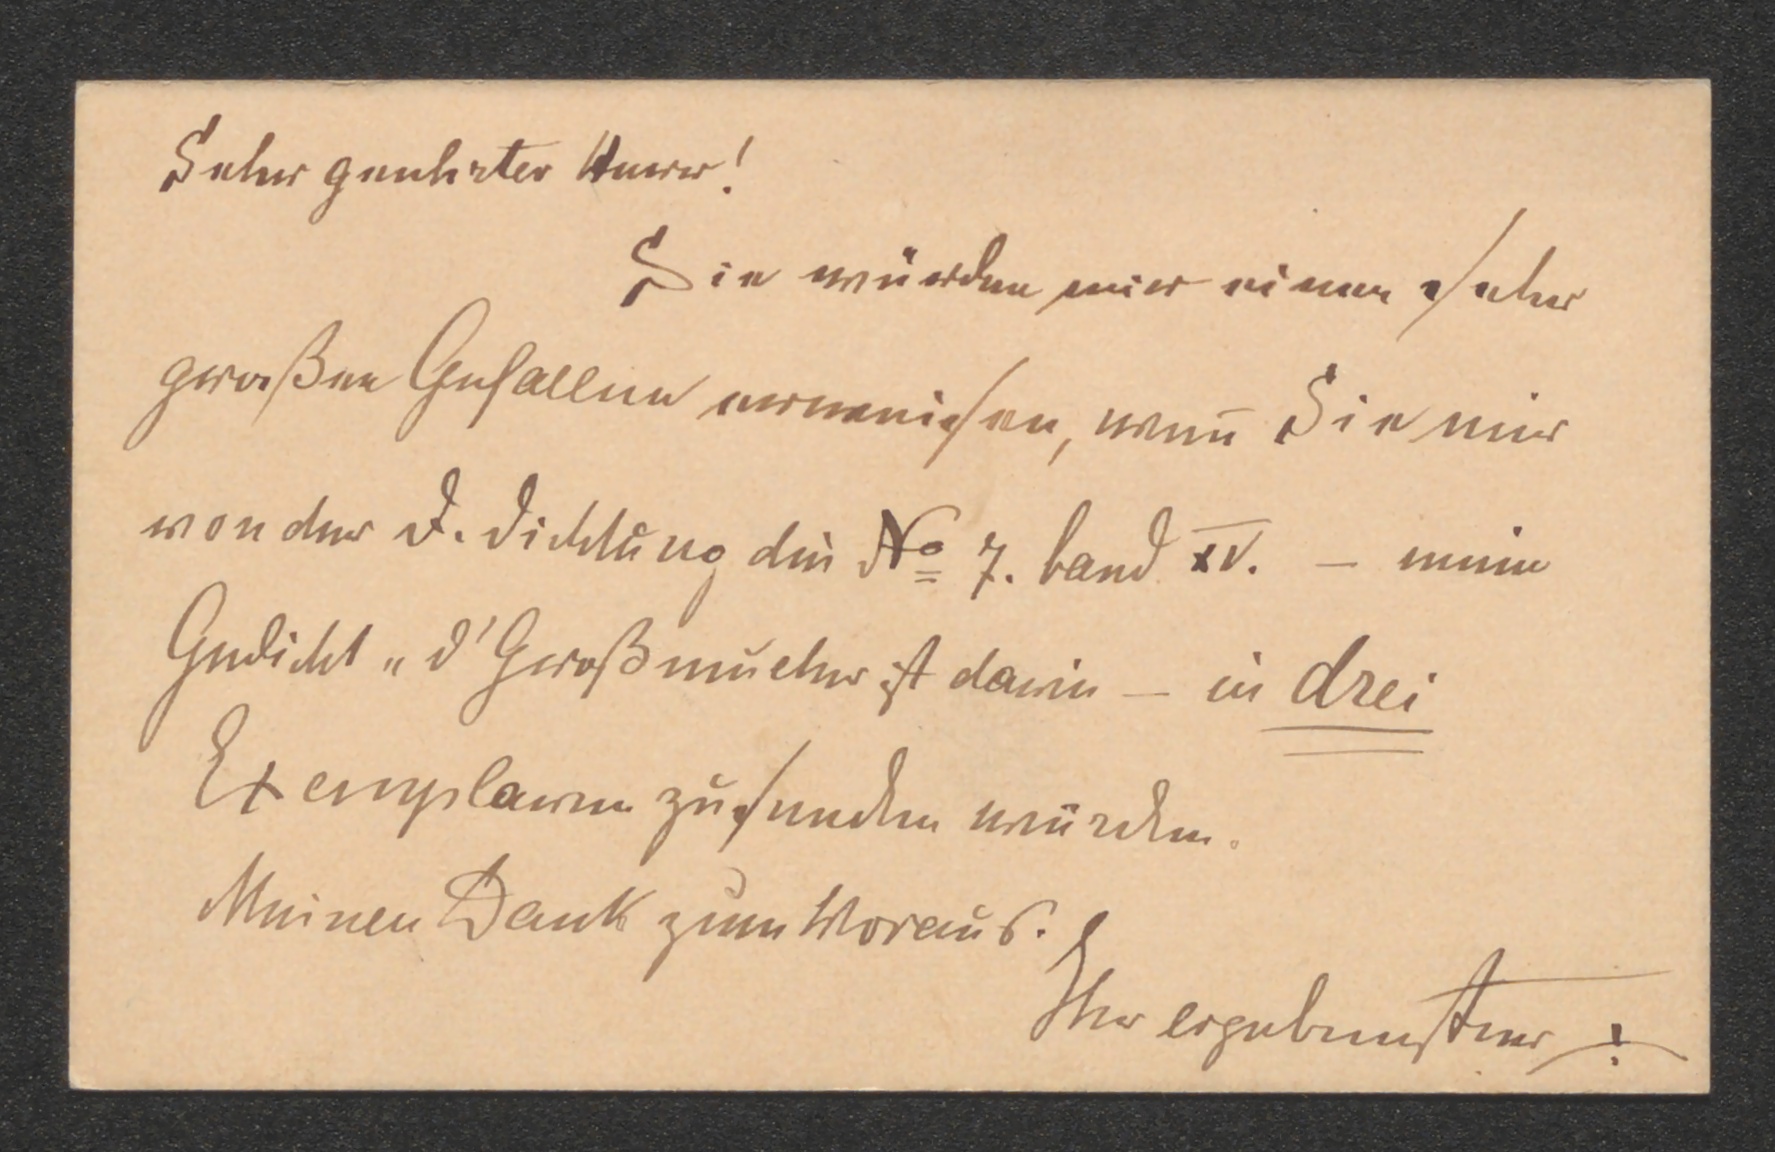 Sehr geehrter Herr!
Sie würden mir einen sehr
großen Gefallen erweisen, wen̄ Sie mir
von der D. Dichtung die No 7. band XV. – mein
Gedicht „d' Großmueter ist darin – in drei
Exemplaren zusenden würden.
Meinen Dank zum Voraus.
Ihr ergebenster